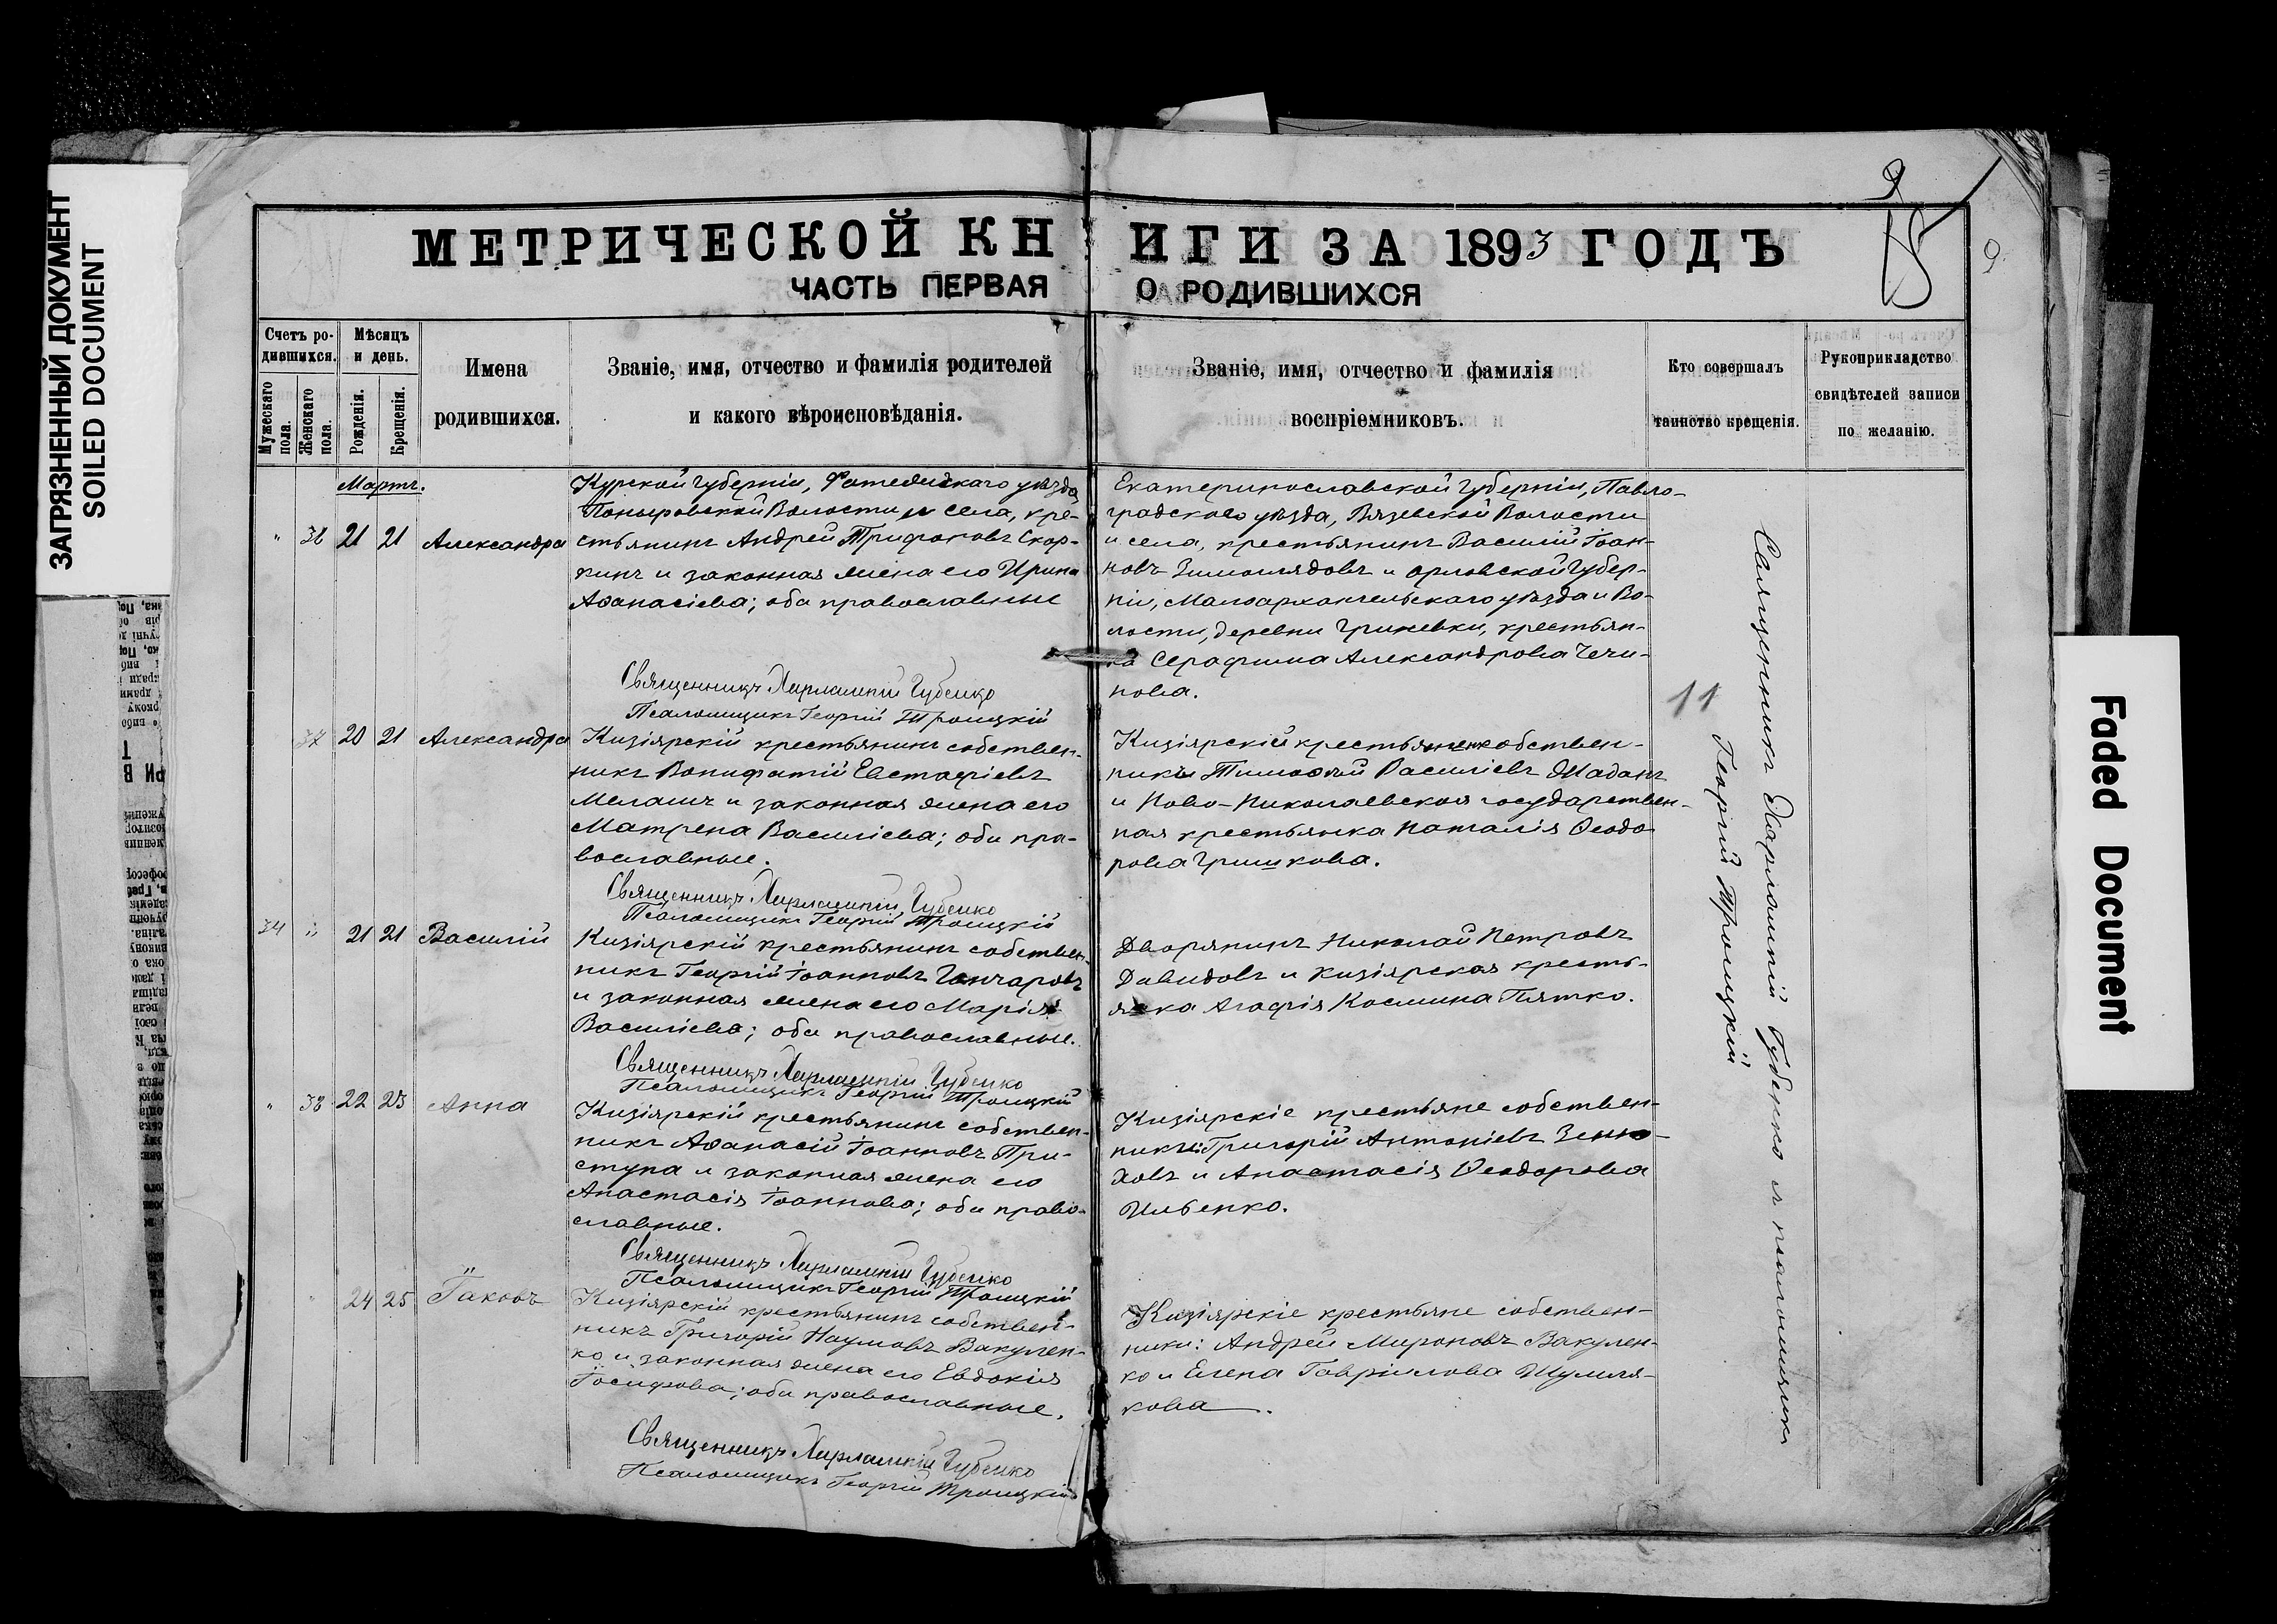 ЗАГРЯЗНЕННЫЙ ДОКУМЕНТ
SOILED DOCUMENT
МЕТРИЧЕСКОЙ КНИГИ ЗА 1893 ГОДЪ
ЧАСТЬ ПЕРВАЯ О РОДИВШИХСЯ
9
9
Счетъ родившихся.
Мужескаго пола.
Женскаго пола.
Мѣсяцъ и день.
Рожденія.
Крещенія.
Имена
родившихся.
Званіе, имя, отчество и фамилія родителей
и какого вѣроисповѣданія.
Званіе, имя, отчество и фамилія
воспріемниковъ.
Кто совершалъ
таинство крещенія.
Рукоприкладство
свидѣтелей записи
по желанію.
Мартъ.
" 36 21 21 Александра
Курской Губерніи, Фатежскаго уѣзда
Поныровской Волости и села, кре-
стьянинъ Андрей Трифоновъ Скор-
кинъ и законная жена его Ирина
Аѳанасіева; оба православные
Священникъ Харлампій Губенко
Псаломщикъ Георгій Троицкій
Екатеринославской Губерніи, Павло-
градскаго уѣзда, Вязевской Волости
и села, крестьянинъ Василій Іоан-
новъ и Орловской Губер-
ніи, Малоархангельскаго уѣзда и Во-
лости, деревни Гриневки, крестьян-
ка Серафима Александрова Чечи-
нова.
37 20 21 Александра
Кизіярскій крестьянинъ собствен-
никъ Вонифатій Евстафіевъ
Мелашъ и законная жена его
Матрена Василіева; оба пра-
вославные.
Священникъ Харлампій Губенко
Псаломщикъ Георгій Троицкій
Кизіярскій крестьянинъ собствен-
никъ Тимоѳей Василіевъ Шабанъ
и Ново-Николаевская государствен-
ная крестьянка Наталія Ѳеодо-
рова Гришкова.
34 " 21 21 Василій
Кизіярскій крестьянинъ собствен-
никъ Георгій Іоанновъ Гончаровъ
и законная жена его Марія
Василіева; оба православные.
Священникъ Харлампій Губенко
Псаломщикъ Георгій Троицкій
Дворянинъ Николай Петровъ
Давидовъ и Кизіярская кресть-
янка Агафія Космина Пятко.
" 38 22 23 Анна
Кизіярскій крестьянинъ собствен-
никъ Аѳанасій Іоанновъ При-
ступа и законная жена его
Анастасія Іоаннова; оба право-
славные.
Священникъ Харлампій Губенко
Псаломщикъ Георгій Троицкій
Кизіярскіе крестьяне собствен-
ники: Григорій Антоніевъ Зень-
ховъ и Анастасія Ѳеодорова
Ильенко.
" 24 25 Іаковъ
Кизіярскій крестьянинъ собствен-
никъ Григорій Наумовъ Вакулен-
ко и законная жена его Евдокія
Іосифова; оба православные.
Священникъ Харлампій Губенко
Псаломщикъ Георгій Троицкій
Кизіярскіе крестьяне собствен-
ники: Андрей Мироновъ Вакулен-
ко и Елена Гавріилова Шумля-
кова.
11
Священникъ Харлампій Губенко и псаломщикъ
Георгій Троицкій
Faded Document